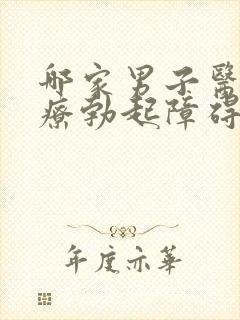 哪家男子醫
療勃起障碍
年度示華